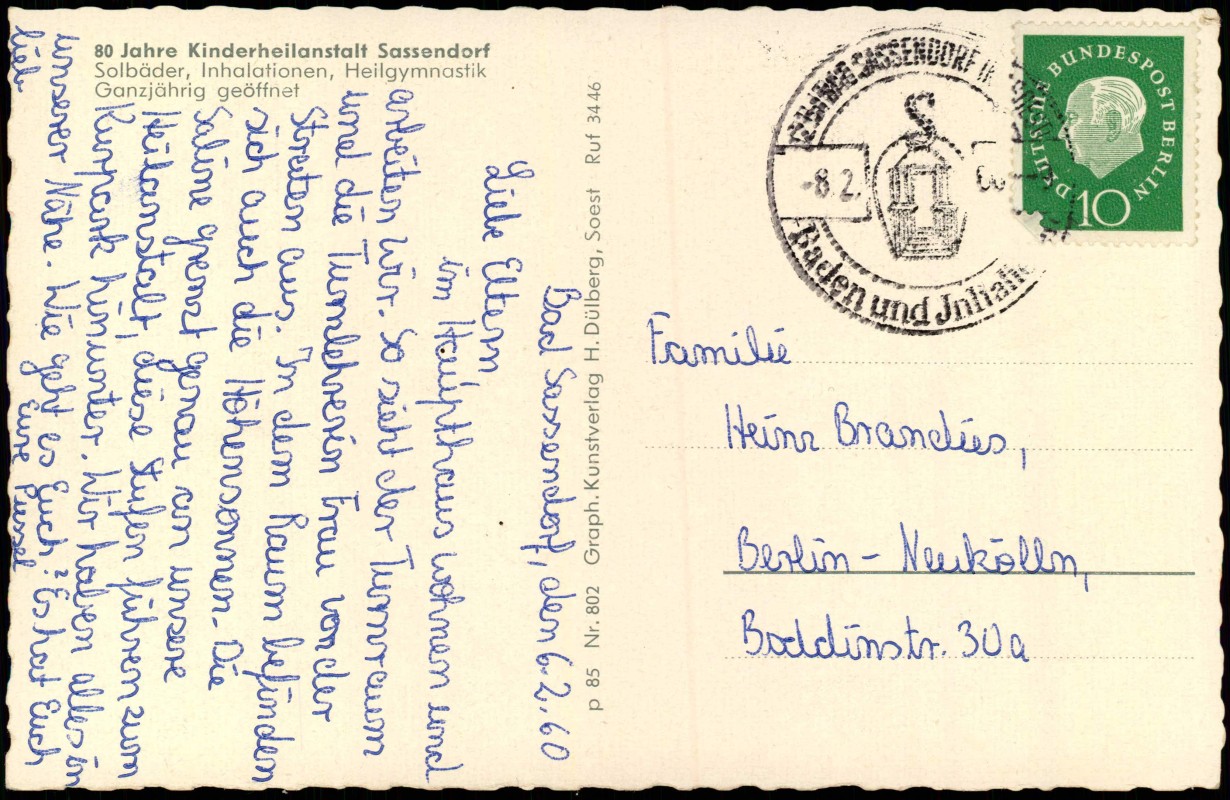 80 Jahre Kinderheilanstalt Sassendorf
Solbäder, Inhalationen, Heilgymnastik
Ganzjährig geöffnet
Bad Sassendorf, den 6.2.60
Liebe Eltern
im Haupthaus wohnen und
arbeiten wir. So sieht der Turnraum
und die Turnlehrerin Frau von der
Straten aus. In dem Raum befinden
sich auch die Höhensonnen. Die
Saline grenzt genau an unsere
Heilanstalt, diese Stufen führen zum
Kurpark hinunter. Wir haben alles in
unserer Nähe. Wie geht es Euch? Es hat Euch
lieb Eure Pussel
p 85 Nr. 802 Graph. Kunstverlag H. Dülberg, Soest · Ruf 3446
SASSENDORF
-8.2.
Baden und
DEUTSCHE BUNDESPOST BERLIN
10
Familie
Heinz Brandies,
Berlin - Neukölln,
Boddinstr. 30a